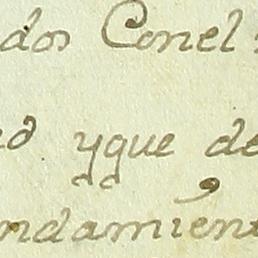 dos Conel
ed yque de
ndamient